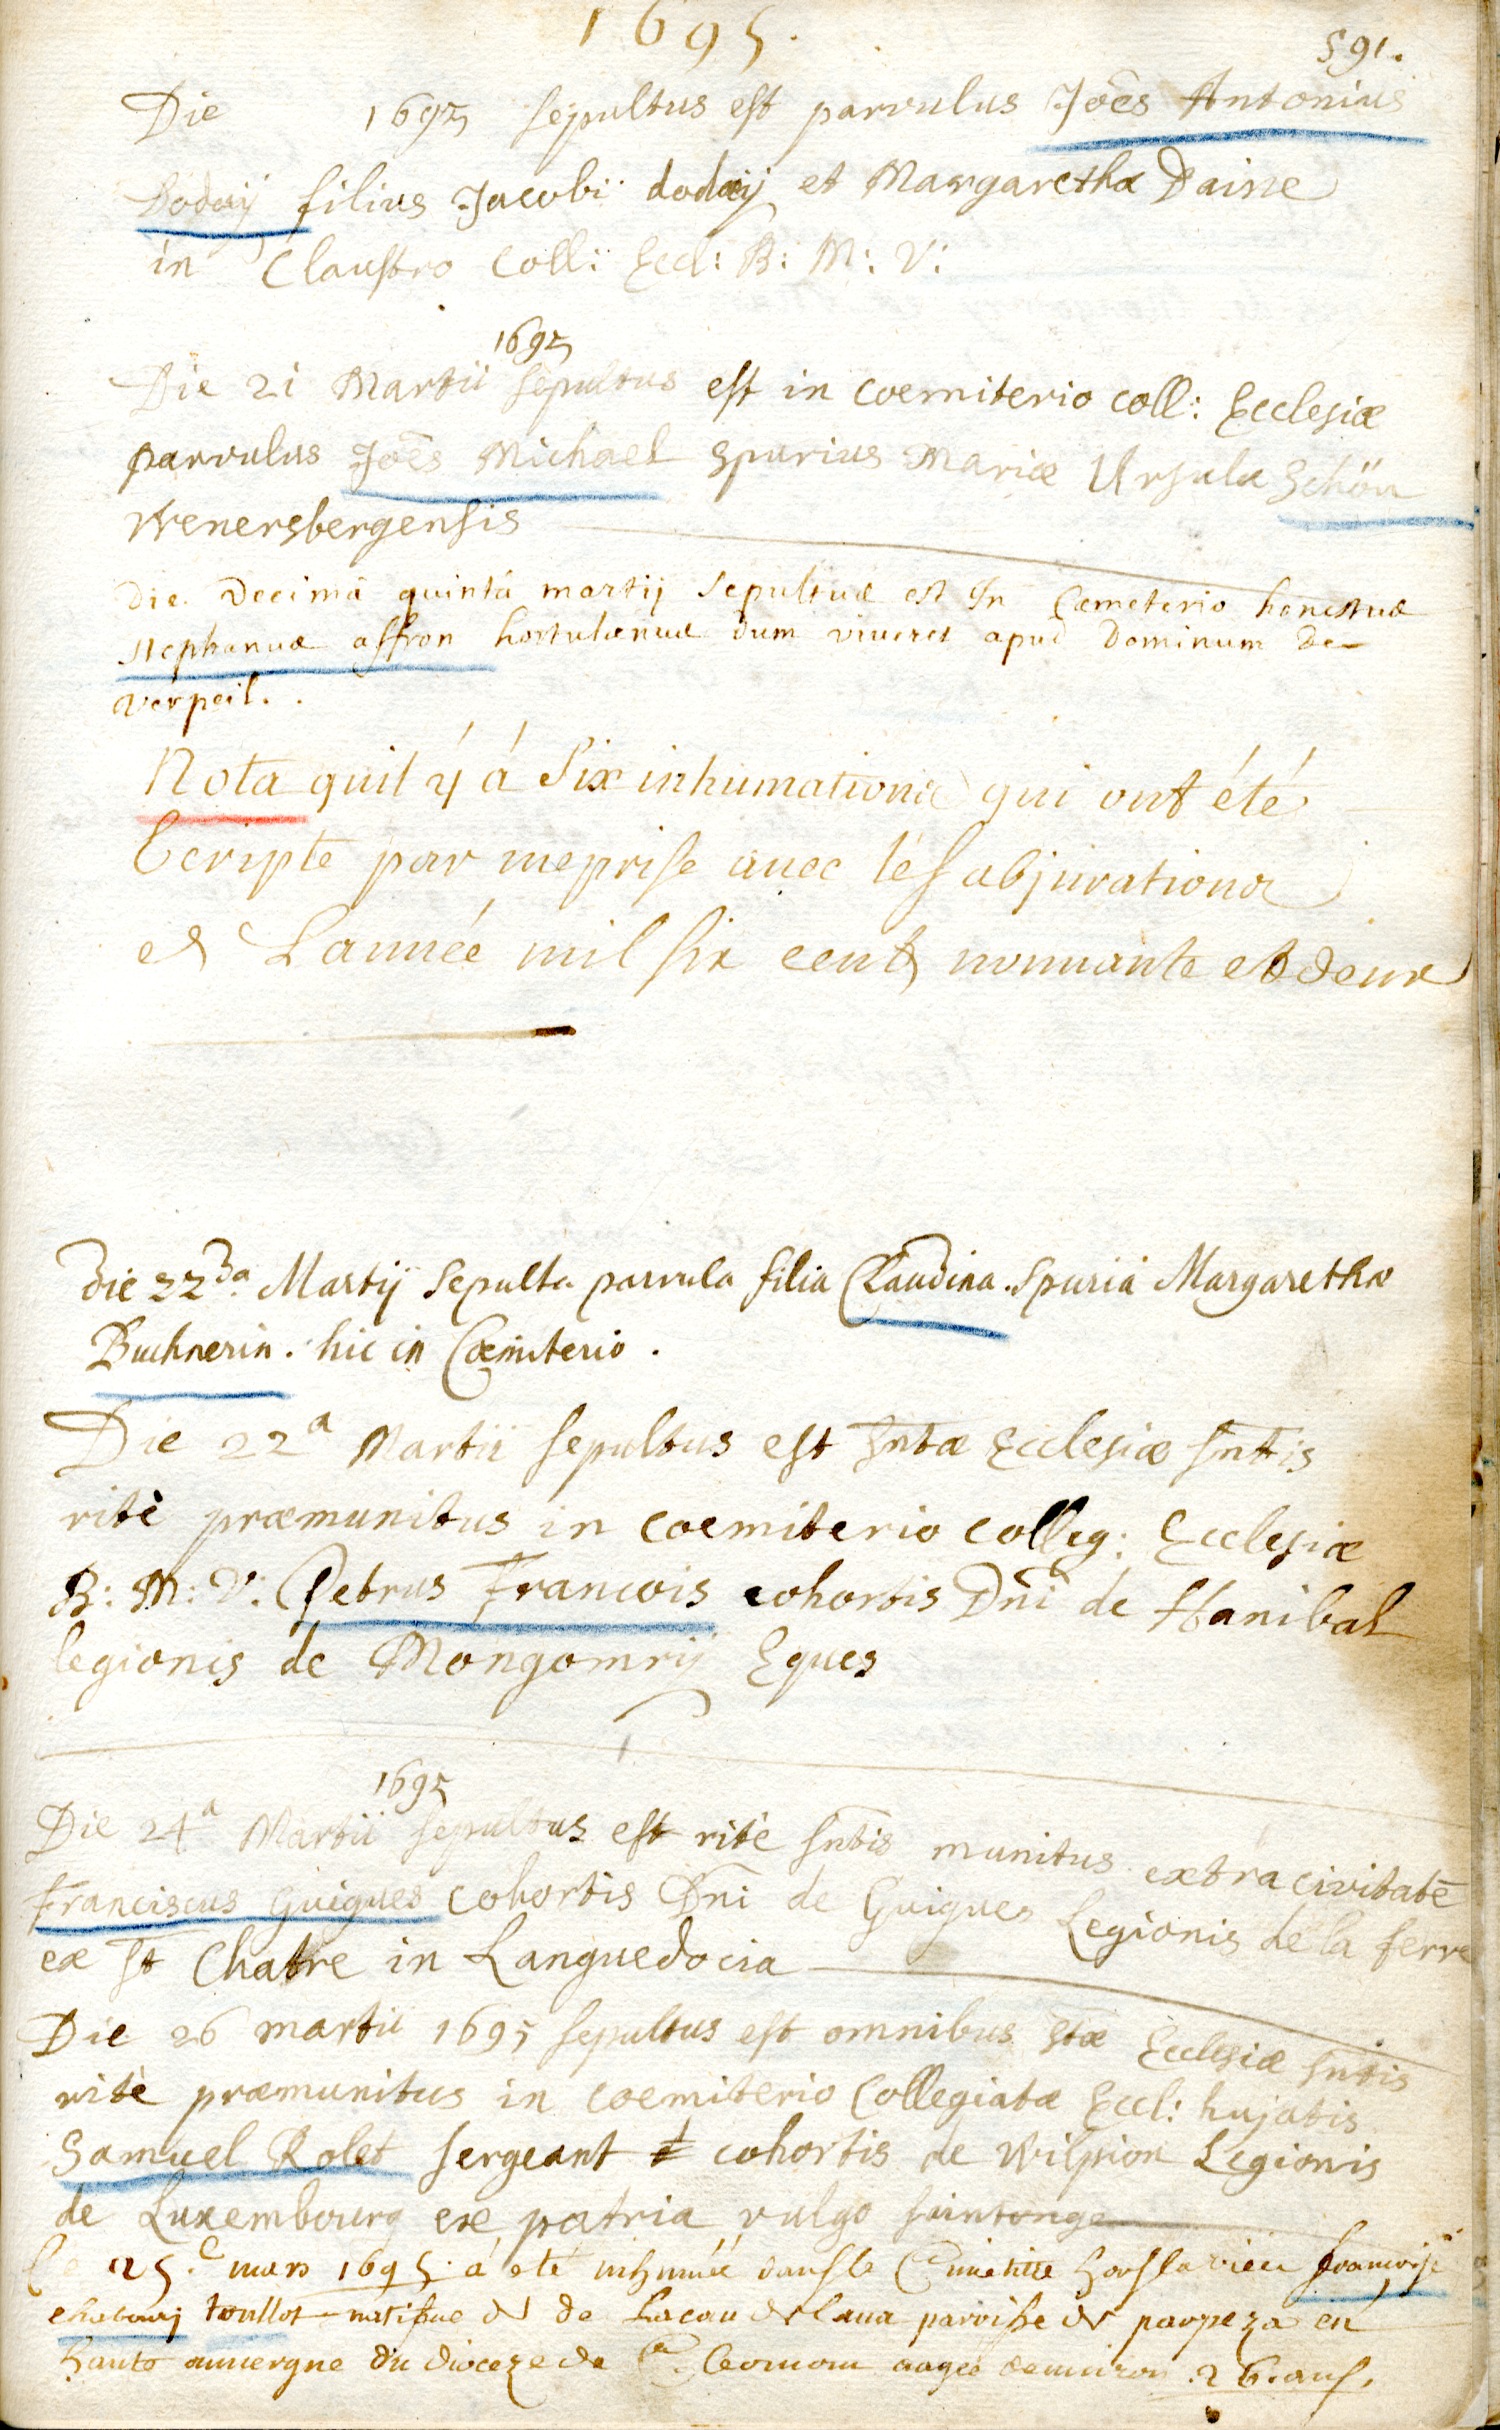 1695.
591.
Die 1695 sepultus est parvulus Joês Antonius
Dodaij filius Jacobi dodaij et Margaretha Daine
in Claustro Coll: Eccl: B: M: V:
1695
Die 21 Martii sepultus est in coemiterio coll: Ecclesiæ
parvulus Joês Michael spurius Mariæ Ursulæ Schön
Wenersbergensis
Die Decimâ quintâ martij sepultus est In Cæmeterio honestus
stephanus affron hortulanus dum viveret apud Dominum de
verpeil.
Nota quil ÿ á Six inhumations qui ont été
Ecripte par meprise avec lés abjurations
et Lannéé mil six cent nonnante et deux
die 22da Martij Sepulta parvula filia Claudina. Spuria Margarethæ
Buchnerin. hic in Cœmiterio.
Die 22a Martii sepultus est Sntæ Ecclesiæ Sntis
ritè præmunitus in coemiterio colleg: Ecclesiæ
B: M: V: Petrus Francois cohortis Dni de Hanibal
legionis de Mongomrij Eques
1695
Die 24a Martii sepultus est ritè Sntis munitus extra civitatē
Franciscus Guigues cohortis Dni de Guigues Legionis de la ferre
ex St Chatre in Languedocia
Die 26 martii 1695 sepultus est omnibus Stæ Ecclesiæ Sntis
ritè præmunitus in coemiterio Collegiatæ Eccl: hujatis
Samuel Rolet sergeant cohortis de Wilpion Legionis
de Luxembourg ex patria vulgo saintonge
Le 25.e mars 1695. á eté inhumée dans le Cimetitre hors la ville francoise
toullot natifue de Lacau parroisse de parpeza en
haute auvergne du dioceze de aagée denuiron 26. ans.